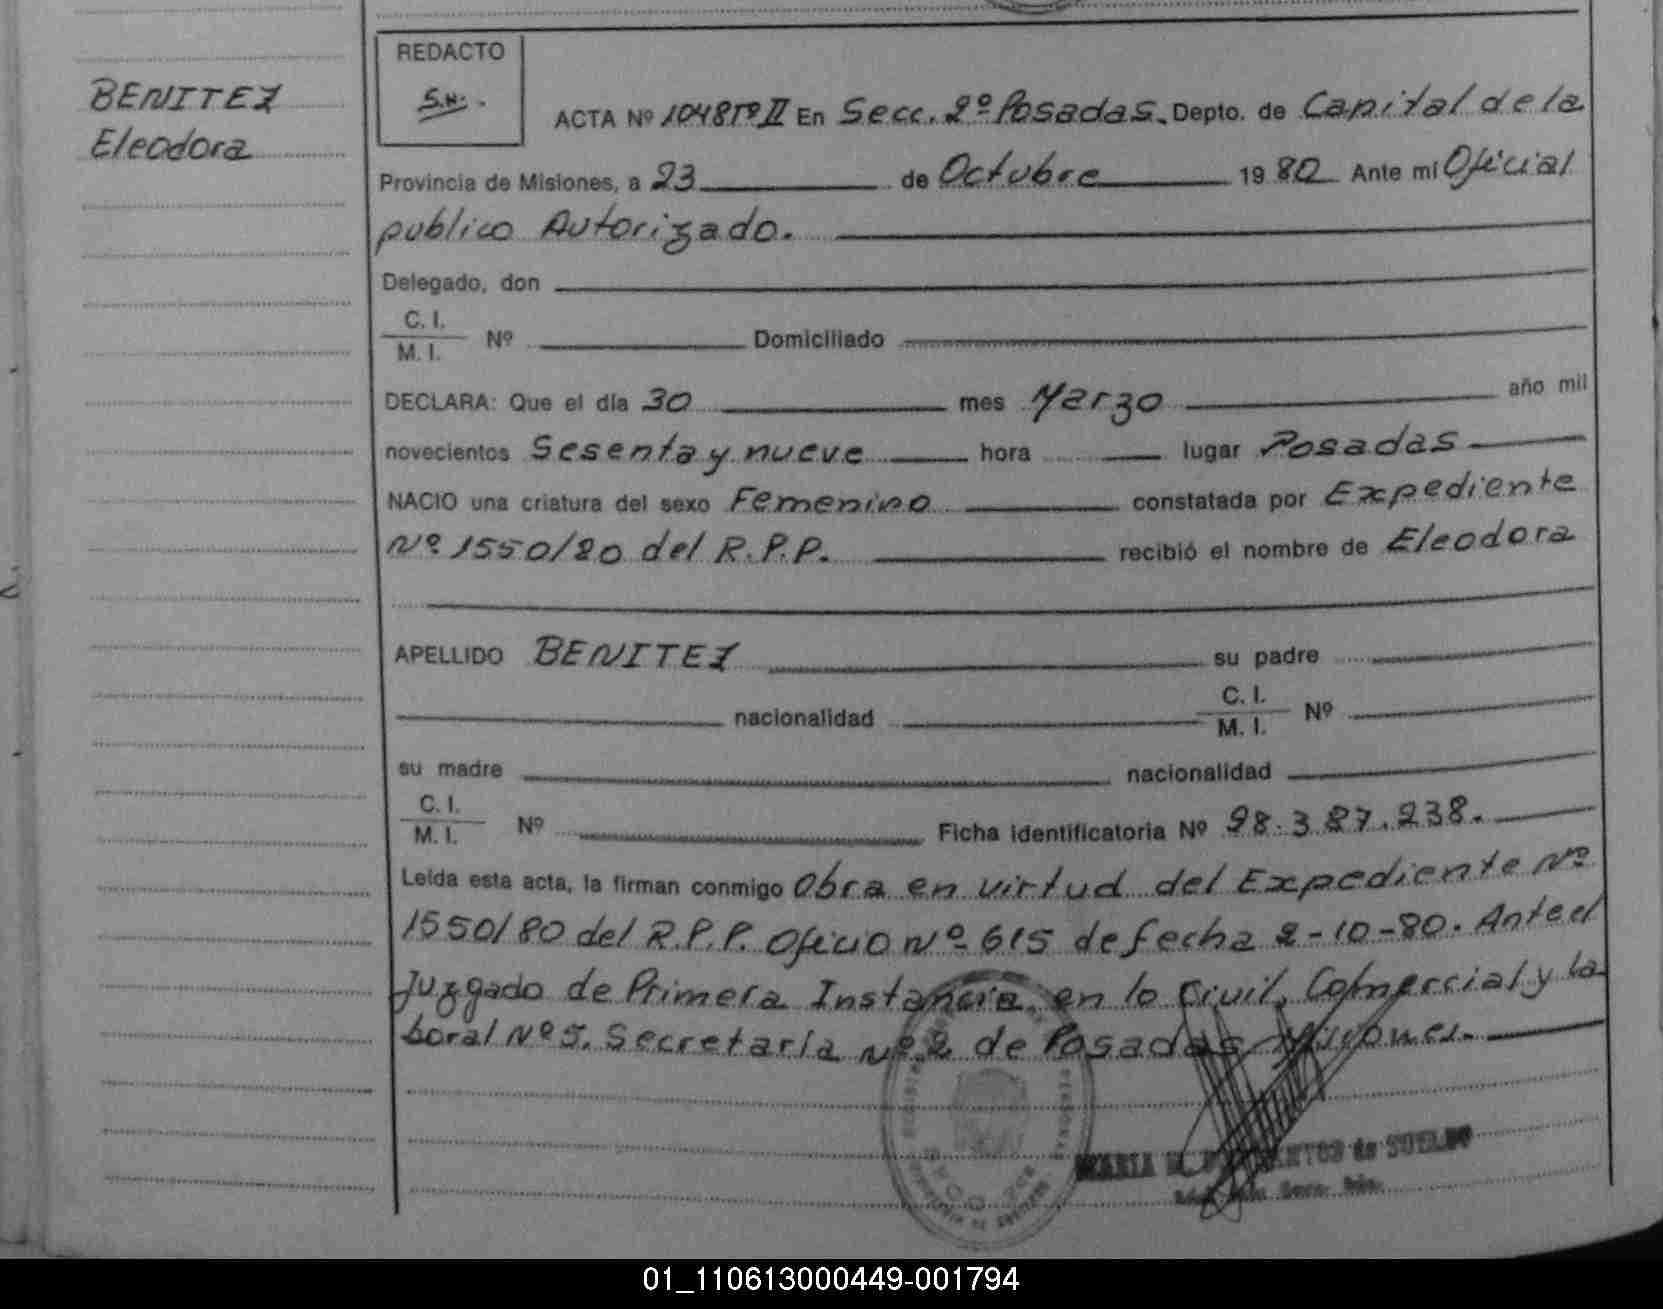 BENITEZ
Eleodora
REDACTO
S.N.
ACTA Nº 1048 Tº II En Secc. 2º Posadas. Depto. de Capital de la
Provincia de Misiones, a 23 de Octubre 1980 Ante mi Oficial
publico Autorizado.
Delegado, don
C. I.
M. I. Nº Domiciliado
DECLARA: Que el día 30 mes Marzo año mil
novecientos Sesenta y nueve hora lugar Posadas
NACIO una criatura del sexo Femenino constatada por Expediente
Nº 1550/80 del R.P.P. recibió el nombre de Eleodora
APELLIDO BENITEZ su padre
nacionalidad C. I.
M. I. Nº
su madre nacionalidad
C. I.
M. I. Nº Ficha identificatoria Nº 98.387.238.
Leída esta acta, la firman conmigo Obra en virtud del Expediente Nº
1550/80 del R.P.P. Oficio Nº 615 de fecha 2-10-80. Ante el
Juzgado de Primera Instancia en lo Civil, Comercial y la
boral Nº 5. Secretaría Nº 2 de Posadas Misiones.
MARIA de SUELDO
01_110613000449-001794